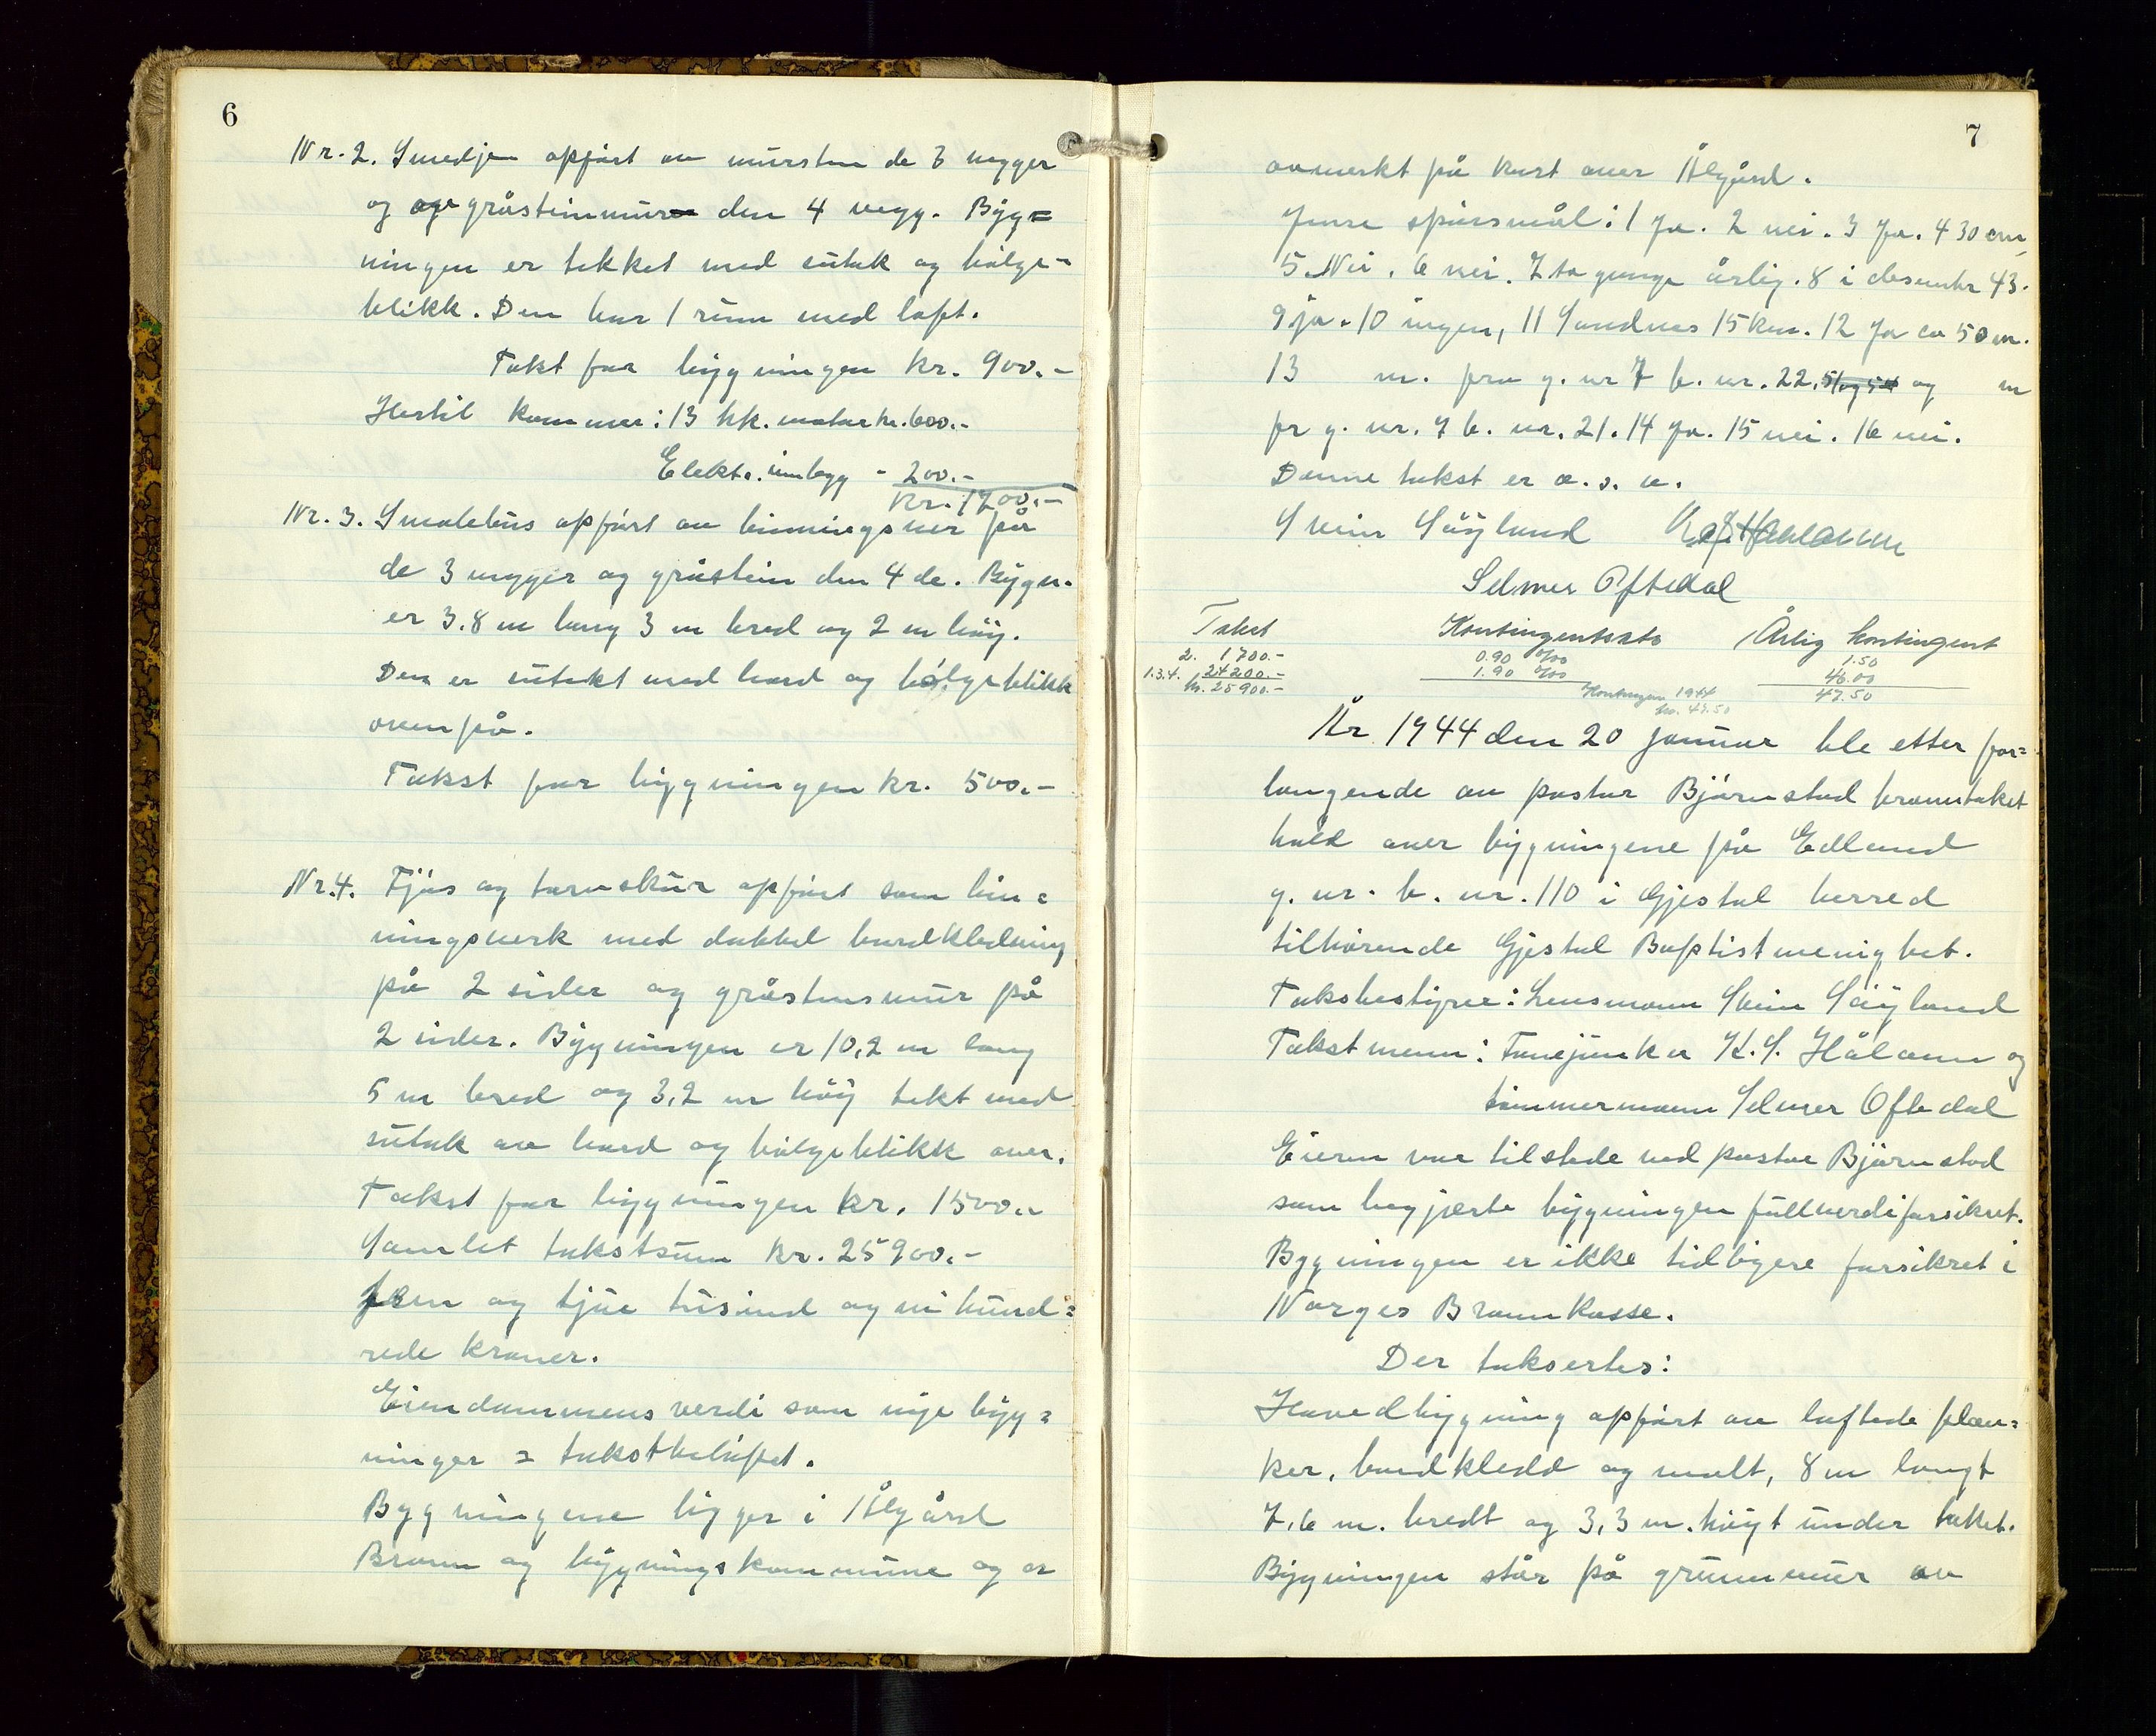 6
Nr. 2. Smedjen opført av mursten de 3 vegger
og gråsteinmur den 4 vegg. Byg=
ningen er tekket med sutak og bølge-
blikk. Den har 1 rum med loft.
Takst for bygningen kr. 900.-
Hertil kommer: 13 hk. motor kr. 600.-
Elektr. innlegg - 200.-
Kr. 1700.-
Nr. 3. opført av binningsver på
de 3 vegger og gråstein den 4 de. Bygn.
er 3.8 m lang 3 m bred og 2 m høy.
Den er sutekt med bord og bølgeblikk
ovenpå.
Takst for bygningen kr. 500.-
Nr. 4. Fjøs og tørnskur opført som bin=
ningsverk med dobbel bordkledning
på 2 sider og gråstensmur på
2 sider. Bygningen er 10,2 m lang
5 m bred og 3,2 m høy tekt med
sutak av bord og bølgeblikk over.
Takst for bygningen kr. 1500.-
Samlet takstsum kr. 25900.-
fem og tjue tusind og ni hund=
rede kroner.
Eiendommens verdi som nye byg=
ninger = takstbeløpet.
Bygningene ligger i Ålgård
Brann og bygningskommune og er
7
avmerkt på kart over Ålgård.
spørsmål: 1 Ja. 2 nei. 3 Ja. 4 30 cm
5. Nei. 6 nei. 7 to gange årlig. 8 i desember 43.
9 ja. 10 ingen, 11 Sandnes 15 km. 12 Ja ca 50 m.
13 m. fra g. nr 7 b. nr. 22, 51 og 54 og m
fr g. nr. 7 b. nr. 21. 14 Ja. 15 nei. 16 nei.
Denne takst er o. s. v.
Svein Søyland K. S. Haaland
Selmer Oftedal
Takst Kontingentsats Årlig kontingent
2. 1700.- 0.90 o/oo 1.50
1.3.4. 24200.- 1.90 o/oo 46.00
kr. 25900.- Kontingen 1944 47.50
kr. 47.50
År 1944 den 20 januar ble etter for=
langende av pastor Bjørnstad branntakst
hold over bygningene på Edland
g. nr. b. nr. 110 i Gjestal herred
tilhørende Gjestal Baptistmenighet.
Takstbestyrer: Lensmann Svein Søyland
Takstmenn: Fanejunker K. S. Håland og
tømmermann Selmer Oftedal
Eieren var tilstede ved pastor Bjørnstad
som begjærte bygningen fullverdiforsikret.
Bygningen er ikke tidligere forsikret i
Norges Brannkasse.
Der taksertes:
Hovedbygning opført av laftede plan=
ker, bordkledd og malt, 8 m langt
7,6 m. bredt og 3,3 m. høyt under taket.
Bygningen står på grunnmur av